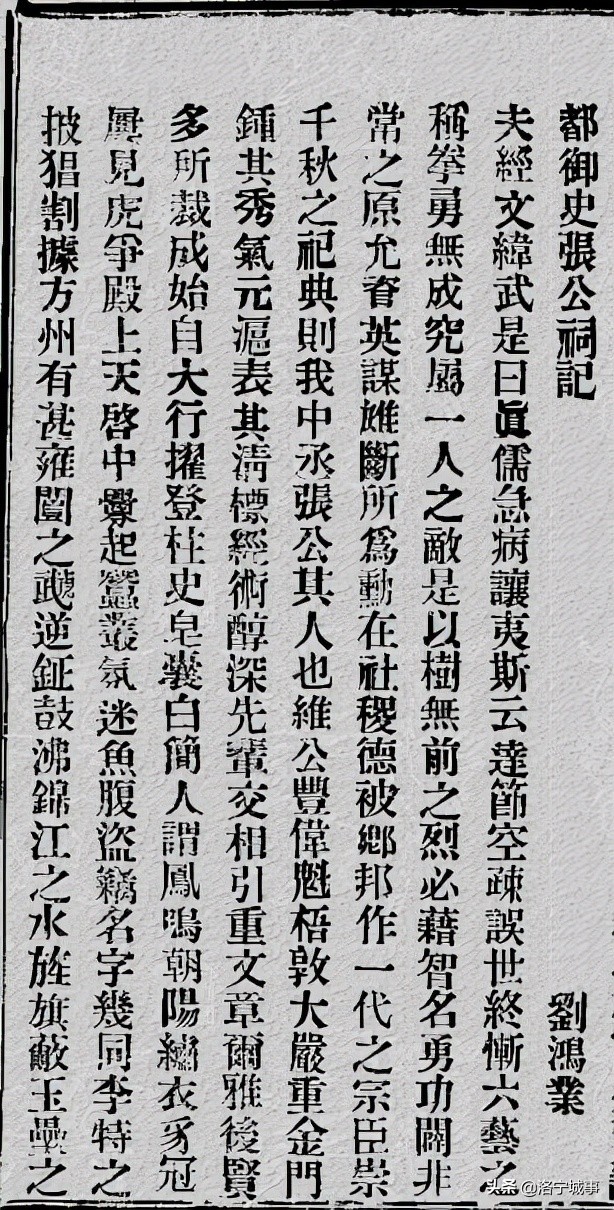 都御史張公祠記　劉鴻業
夫經文緯武是曰眞儒急病讓夷斯云達節空疎誤世終慚六藝之
稱拳勇無成究屬一人之敵是以樹無前之烈必藉智名勇功闢非
常之原允資英謀雄斷所爲勳在社稷德被鄉邦作一代之宗臣崇
千秋之祀典則我中丞張公其人也維公豐偉魁梧敦大嚴重金門
鍾其秀氣元滬表其淸標經術醇深先輩交相引重文章爾雅後賢
多所裁成始自大行擢登柱史皂囊白簡人謂鳳鳴朝陽繡衣豸冠
屢見虎爭殿上天啓中釁起蠶叢氛迷魚腹盜竊名字幾同李特之
披猖割據方州有甚雍闓之武逆鉦鼓沸錦江之水旌旗蔽玉壘之
头条 @洛宁城事